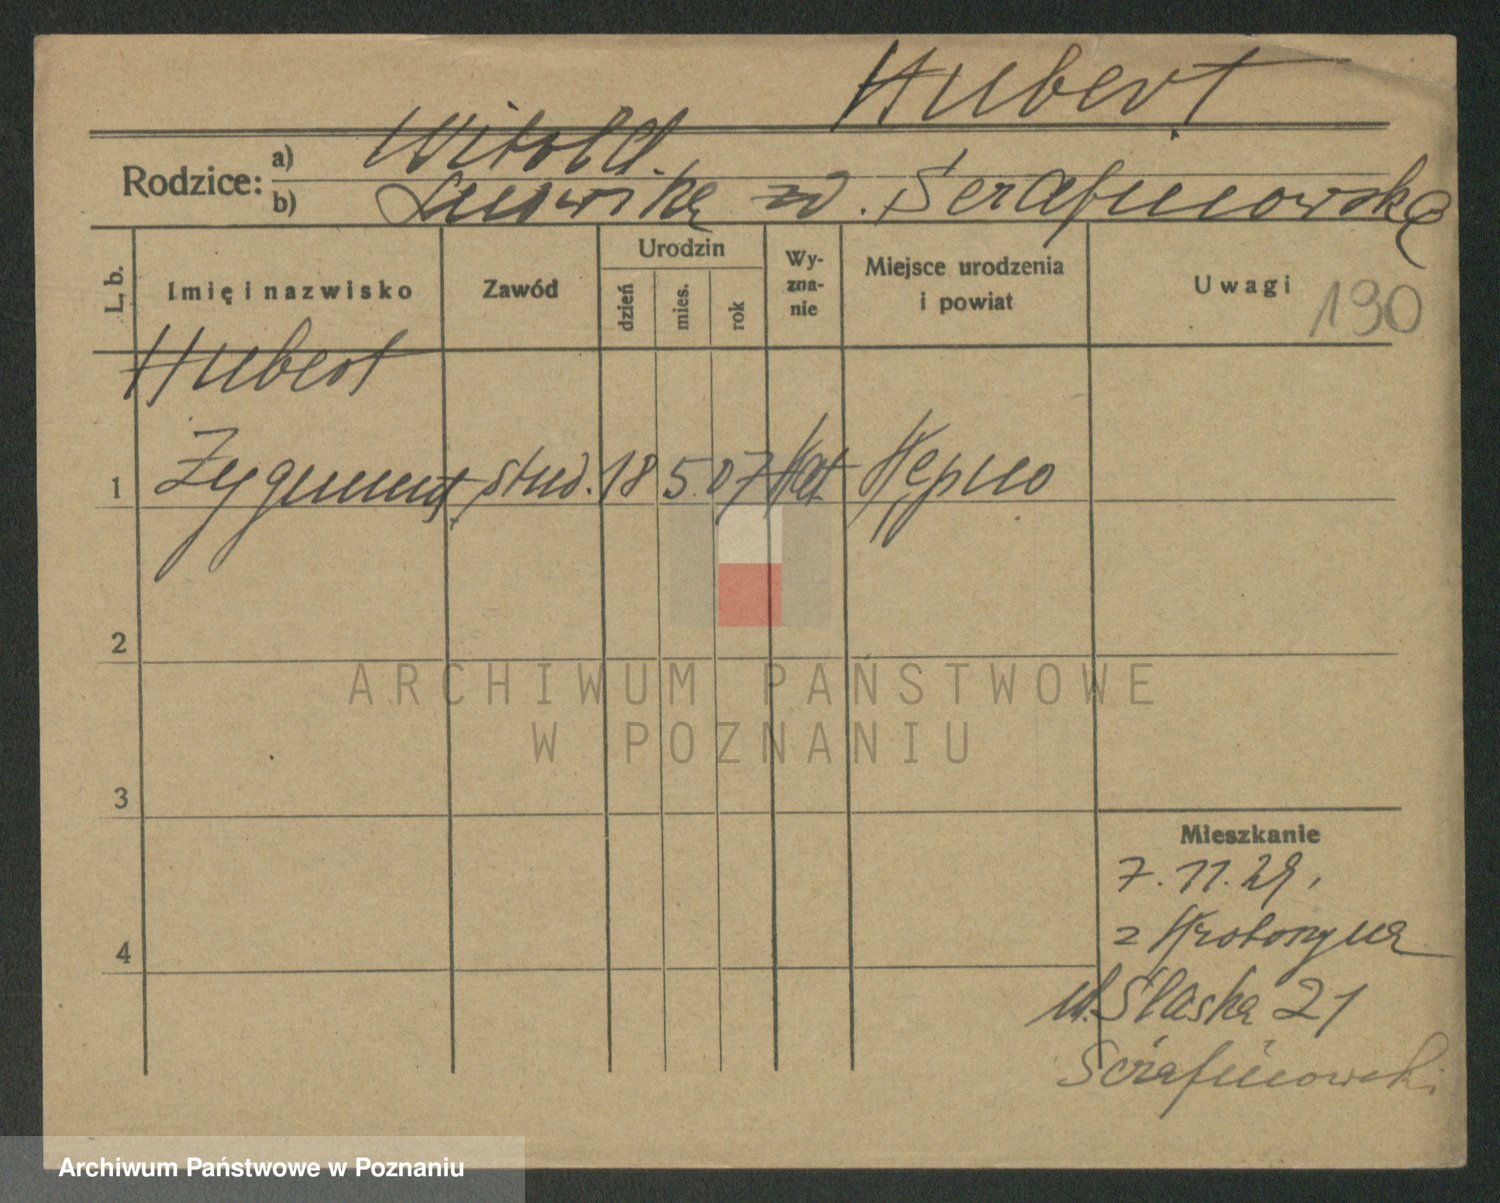 Hubert
Rodzice: a) Witold
b) Ludwika zd. Serafinowska
L. b. Imię i nazwisko Zawód Urodzin dzień mies. rok Wyznanie Miejsce urodzenia i powiat Uwagi 190
Hubert
1 Zygmunt stud. 18 5. 07 kat Kępno
2
ARCHIWUM PAŃSTWOWE
W POZNANIU
3
Mieszkanie
7. 11. 29.
4 z Krotoszyna
ul. Śląska 21
Serafinowski
Archiwum Państwowe w Poznaniu